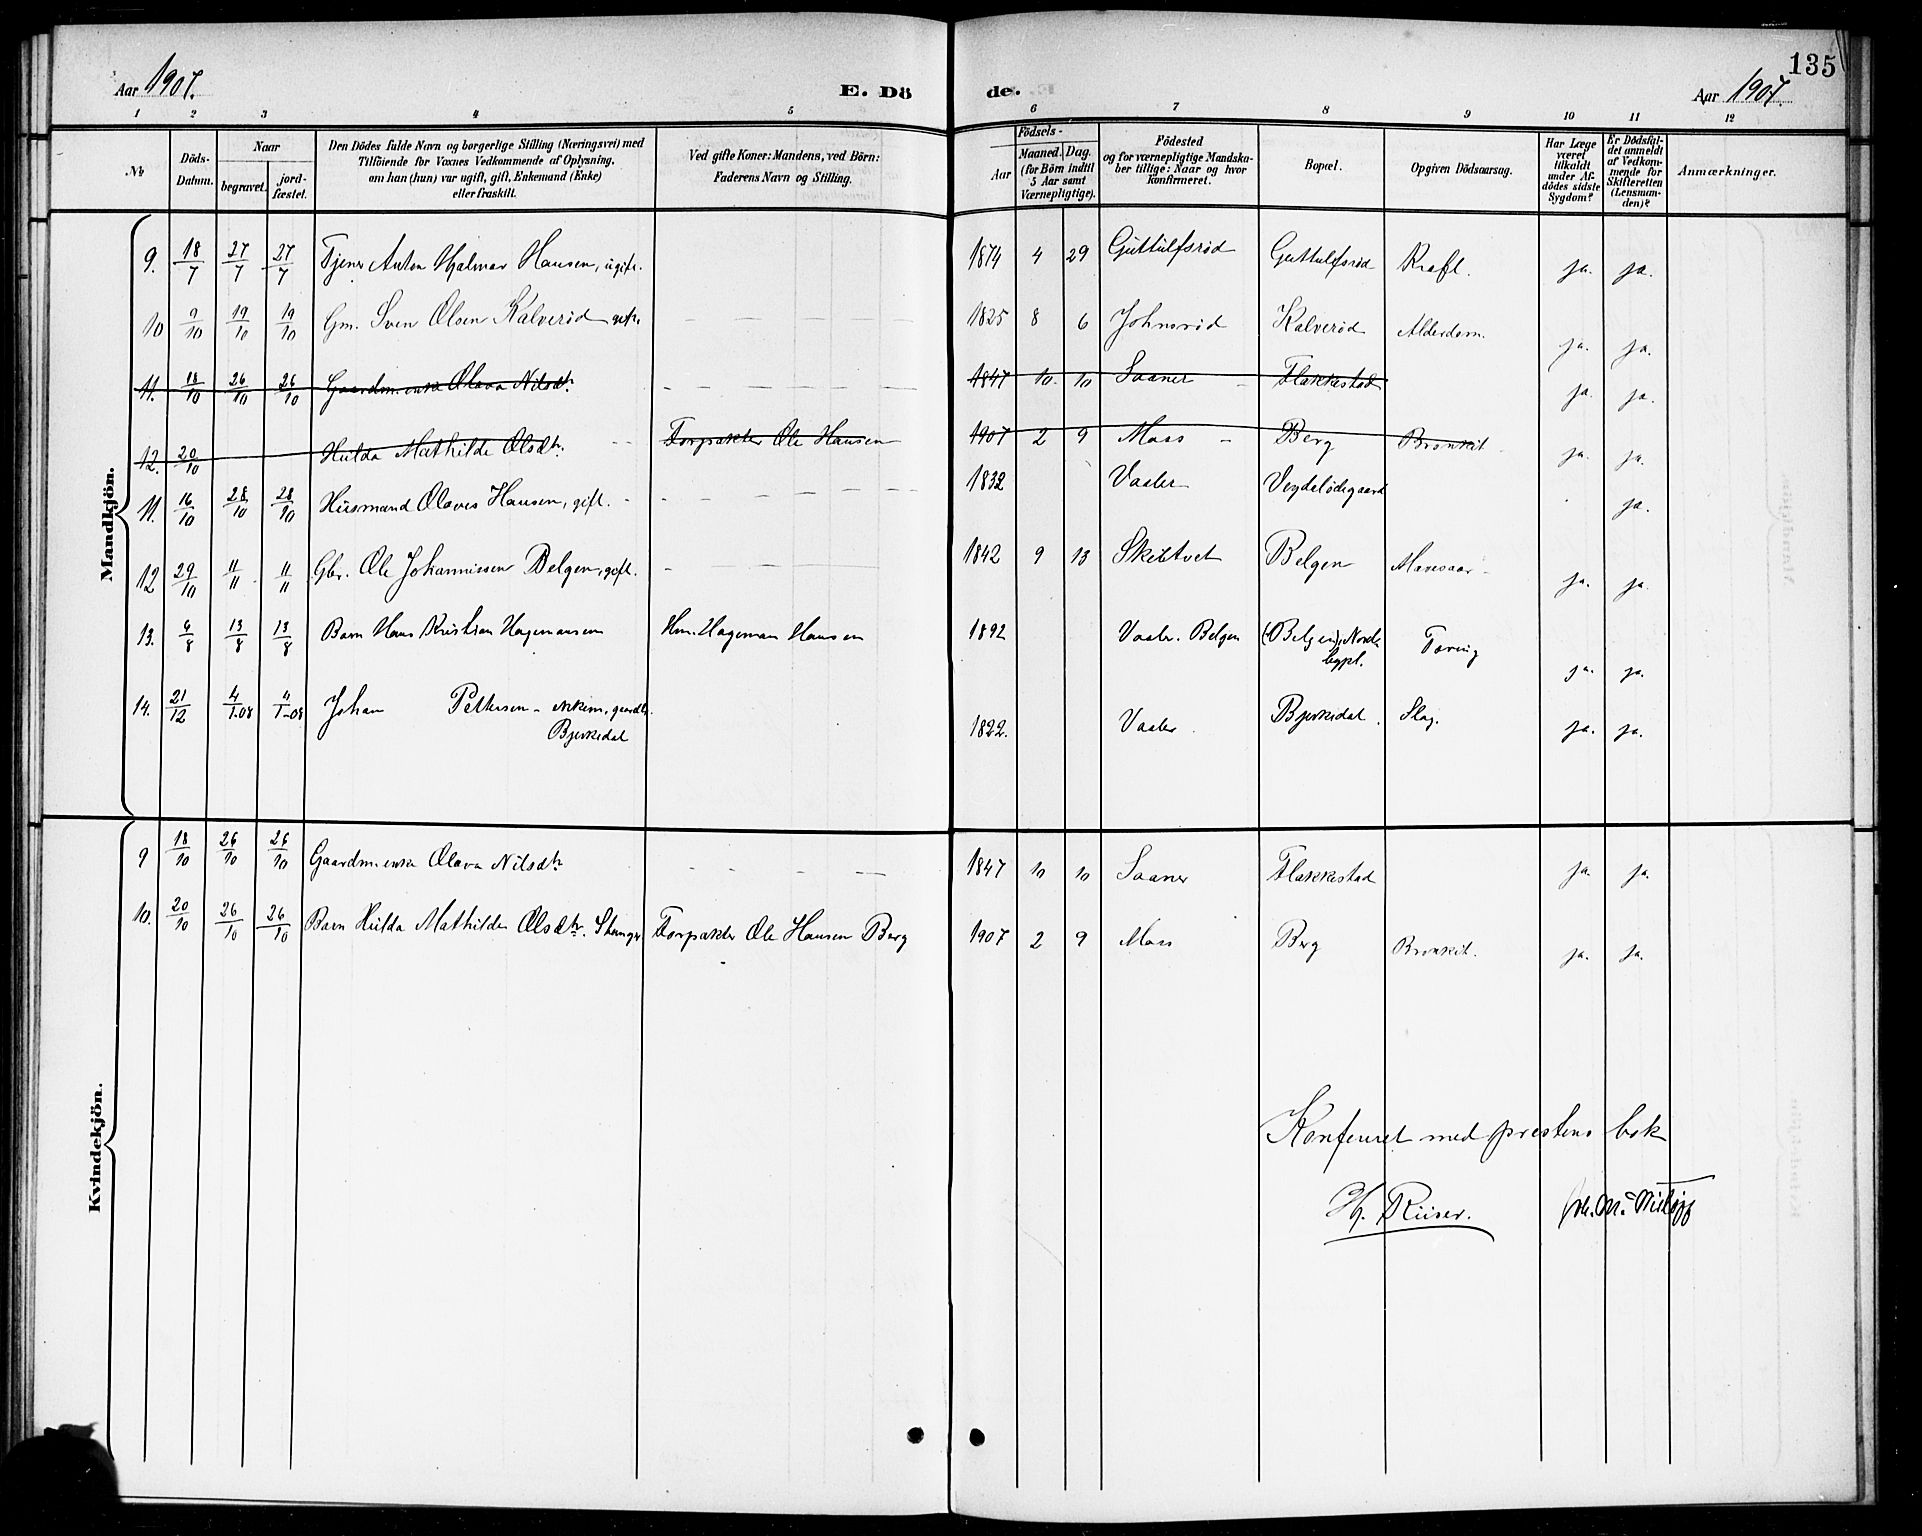 135
Aar 1907. E. Dö de. Aar 1907.
1 2 3 4 5 6 7 8 9 10 11 12
No
Döds-Datum.
Naar
begravet.
jord-fæstet.
Den Dödes fulde Navn og borgerlige Stilling (Næringsvei) med
Tilföiende for Voxnes Vedkommende af Oplysning,
om han (hun) var ugift, gift, Enkemand (Enke)
eller fraskilt.
Ved gifte Koner: Mandens, ved Börn:
Faderens Navn og Stilling.
Födsels-
Aar
Maaned. Dag.
(for Börn indtil
5 Aar samt
Værnepligtige).
Födested
og for værnepligtige Mandska-
ber tillige: Naar og hvor
Konfirmeret.
Bopæl.
Opgiven Dödsaarsag.
Har Læge
været
tilkaldt
under Af-
dödes sidste
Sygdom?
Er Dödsfal-
det anmeldt
af Vedkom-
mende for
Skifteretten
(Lensman-
den)?
Anmærkninger.
Mandkjön.
9. 18/7 27/7 27/7 Tjener Anton Hjalmar Hansen, ugift. 1874 4 29 Guttulfsrød Guttulfsrød Kræft. ja. ja.
10 9/10 19/10 19/10 Gm. Sven Olsen Kalverød gift. 1825 8 6 Johnsrød Kalverød Alderdom. ja. ja.
11. 18/10 26/10 26/10 Gaardm. enke Olava Nilsdtr. 1847 10. 10 Saaner Flakkestad ja. ja.
12. 20/10 Hulda Mathilde Olsdtr. Forpakter Ole Hansen 1907 2 9 Moss Berg Bronkit. ja. ja.
11. 16/10 28/10 28/10 Husmand Olaves Hansen, gift. 1832 Vaaler Vejdalødegaard ja.
12 29/10 11/11 11/11 Gbr. Ole Johannissen Belgen, gift. 1842 9 13 Skibtvet Belgen Mavesaar ja. ja.
13. 6/8 13/8 13/8 Barn Hans Kristian Hagemansen Hm. Hageman Hansen 1892 Vaaler. Belgen (Belgen), Nordre bypl. Tæring ja. ja.
14. 21/12 4/1-08 4/1-08 Johan Pettersen - enkem, gaardbr. 1822. Vaaler Bjerkedal. Slag. ja. ja.
Bjerkedal
Kvindekjön.
9 18/10 26/10 26/10 Gaardm. enke Olava Nilsdtr 1847 10 10 Saaner Flakkestad ja. ja.
10. 20/10 26/10 26/10 Barn Hulda Mathilde Olsdtr. Stanger Forpakter Ole Hansen Berg 1907 2 9 Moss Berg Bronkit. ja. ja.
Konferert med prestens bok
H. Riiser.